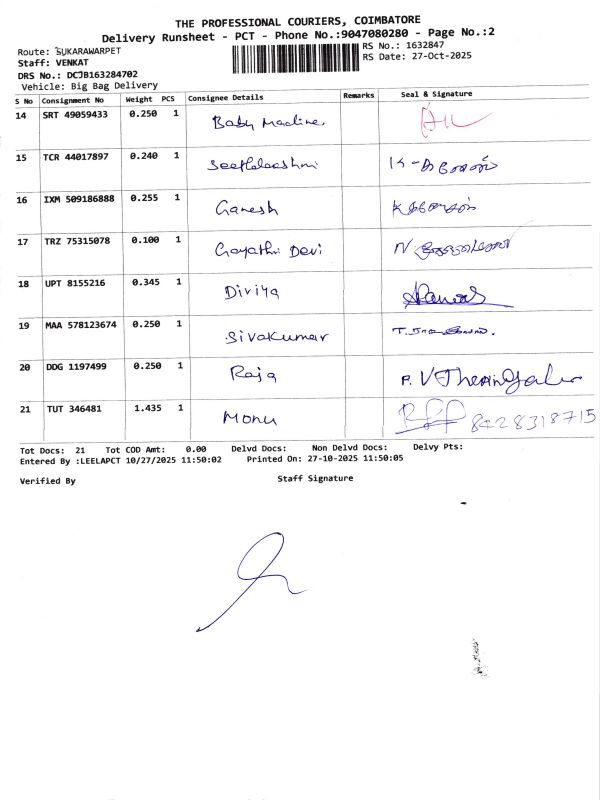 THE PROFESSIONAL COURIERS, COIMBATORE
Delivery Runsheet - PCT - Phone No.:9047080280 - Page No.:2
Route: SUKARAWARPET
RS No.: 1632847
Staff: VENKAT
RS Date: 27-Oct-2025
DRS No.: DCJB163284702
Vehicle: Big Bag Delivery
S No Consignment No Weight PCS Consignee Details Remarks Seal & Signature
14 SRT 49059433 0.250 1 Baby Macline
15 TCR 44017897 0.240 1 Seethalakshmi
16 IXM 509186888 0.255 1 Ganesh
17 TRZ 75315078 0.100 1 Gayathri Devi
18 UPT 8155216 0.345 1 Diviya
19 MAA 578123674 0.250 1 Sivakumar
20 DDG 1197499 0.250 1 Raja
21 TUT 346481 1.435 1 Monu 8428318715
Tot Docs: 21 Tot COD Amt: 0.00 Delvd Docs: Non Delvd Docs: Delvy Pts:
Entered By :LEELAPCT 10/27/2025 11:50:02 Printed On: 27-10-2025 11:50:05
Verified By Staff Signature